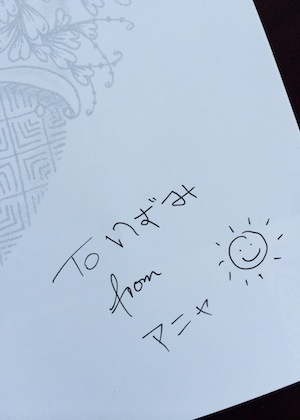 To いずみ
from
アニャ